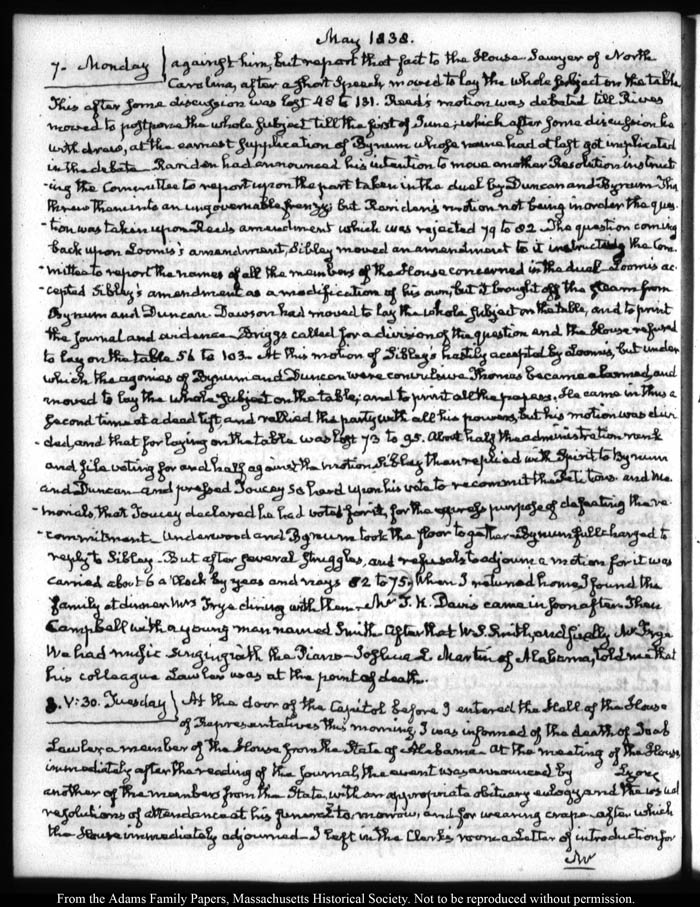 May 1838.
7. Monday } against him, but report that fact to the House. Sawyer of North
Carolina, after a short Speech moved to lay the whole subject on the table
This after some discussion was lost 48 to 131. Read's motion was debated till Rives
moved to postpone the whole subject till the first of June; which after some discussion he
withdrew, at the earnest supplication of Bynum whose name had at last got implicated
in the debate. Rariden had announced his intention to move another Resolution instruct
-ing the Committee to report upon the part taken in the duel by Duncan and Bynum. This
threw them into an ungovernable frenzy; but Rariden's motion not being in order the ques-
-tion was taken upon Reads amendment which was rejected 79 to 82. The question coming
back upon Loomis's amendment, Sibley moved an amendment to it instructing the Com-
-mittee to report the names of all the members of the House concerned in the duel. Loomis ac-
-cepted Sibley's amendment as a modification of his own, but it brought off the steam from
Bynum and Duncan. Dawson had moved to lay the whole subject on the table, and to print
the Journal and evidence. Briggs called for a division of the question and the House refused
to lay on the table 56 to 103. At this motion of Sibley's hastily accepted by Loomis, but under
which the agonies of Bynum and Duncan were convulsive Thomas became alarmed, and
moved to lay the whole subject on the table; and to print all the papers. He came in thus a
second time at a dead lift, and rallied the party with all his powers, but his motion was divi
-ded, and that for laying on the table was lost 73 to 95. About half the administration rank
and file voting for and half against the motion. Sibley then replied with Spirit to Bynum
and Duncan and pressed Toucey so hard upon his vote to recommit the Petitions and Me-
-morials, that Toucey declared he had voted for it, for the express purpose of defeating the re-
-commitment. Underwood and Bynum took the floor together. Bynum full charged to
reply to Sibley. But after several struggles, and refusals to adjourn a motion for it was
carried about 6 o'Clock by yeas and nays 82 to 75. When I returned home, I found the
family at dinner Mrs Frye dining with them. Mr T. K. Davis came in soon after. Then
Campbell with a young man named Smith. After that W. S. Smith, and finally Mr Frye
We had music singing with the Piano. Joshua L. Martin of Alabama, told me that
his colleague Lawler was at the point of death.
8. V:30. Tuesday } At the door of the Capitol before I entered the Hall of the House
of Representatives this morning, I was informed of the death of Joab
Lawler, a member of the House from the State of Alabama. At the meeting of the House,
immediately after the reading of the Journal, the event was announced by Lyon,
another of the members from the State, with an appropriate obituary eulogy and the usual
resolutions of attendance at his funeral to morrow, and for wearing crape. after which
the House immediately adjourned. I left in the Clerk's room a Letter of introduction for
Mr
From the Adams Family Papers, Massachusetts Historical Society. Not to be reproduced without permission.